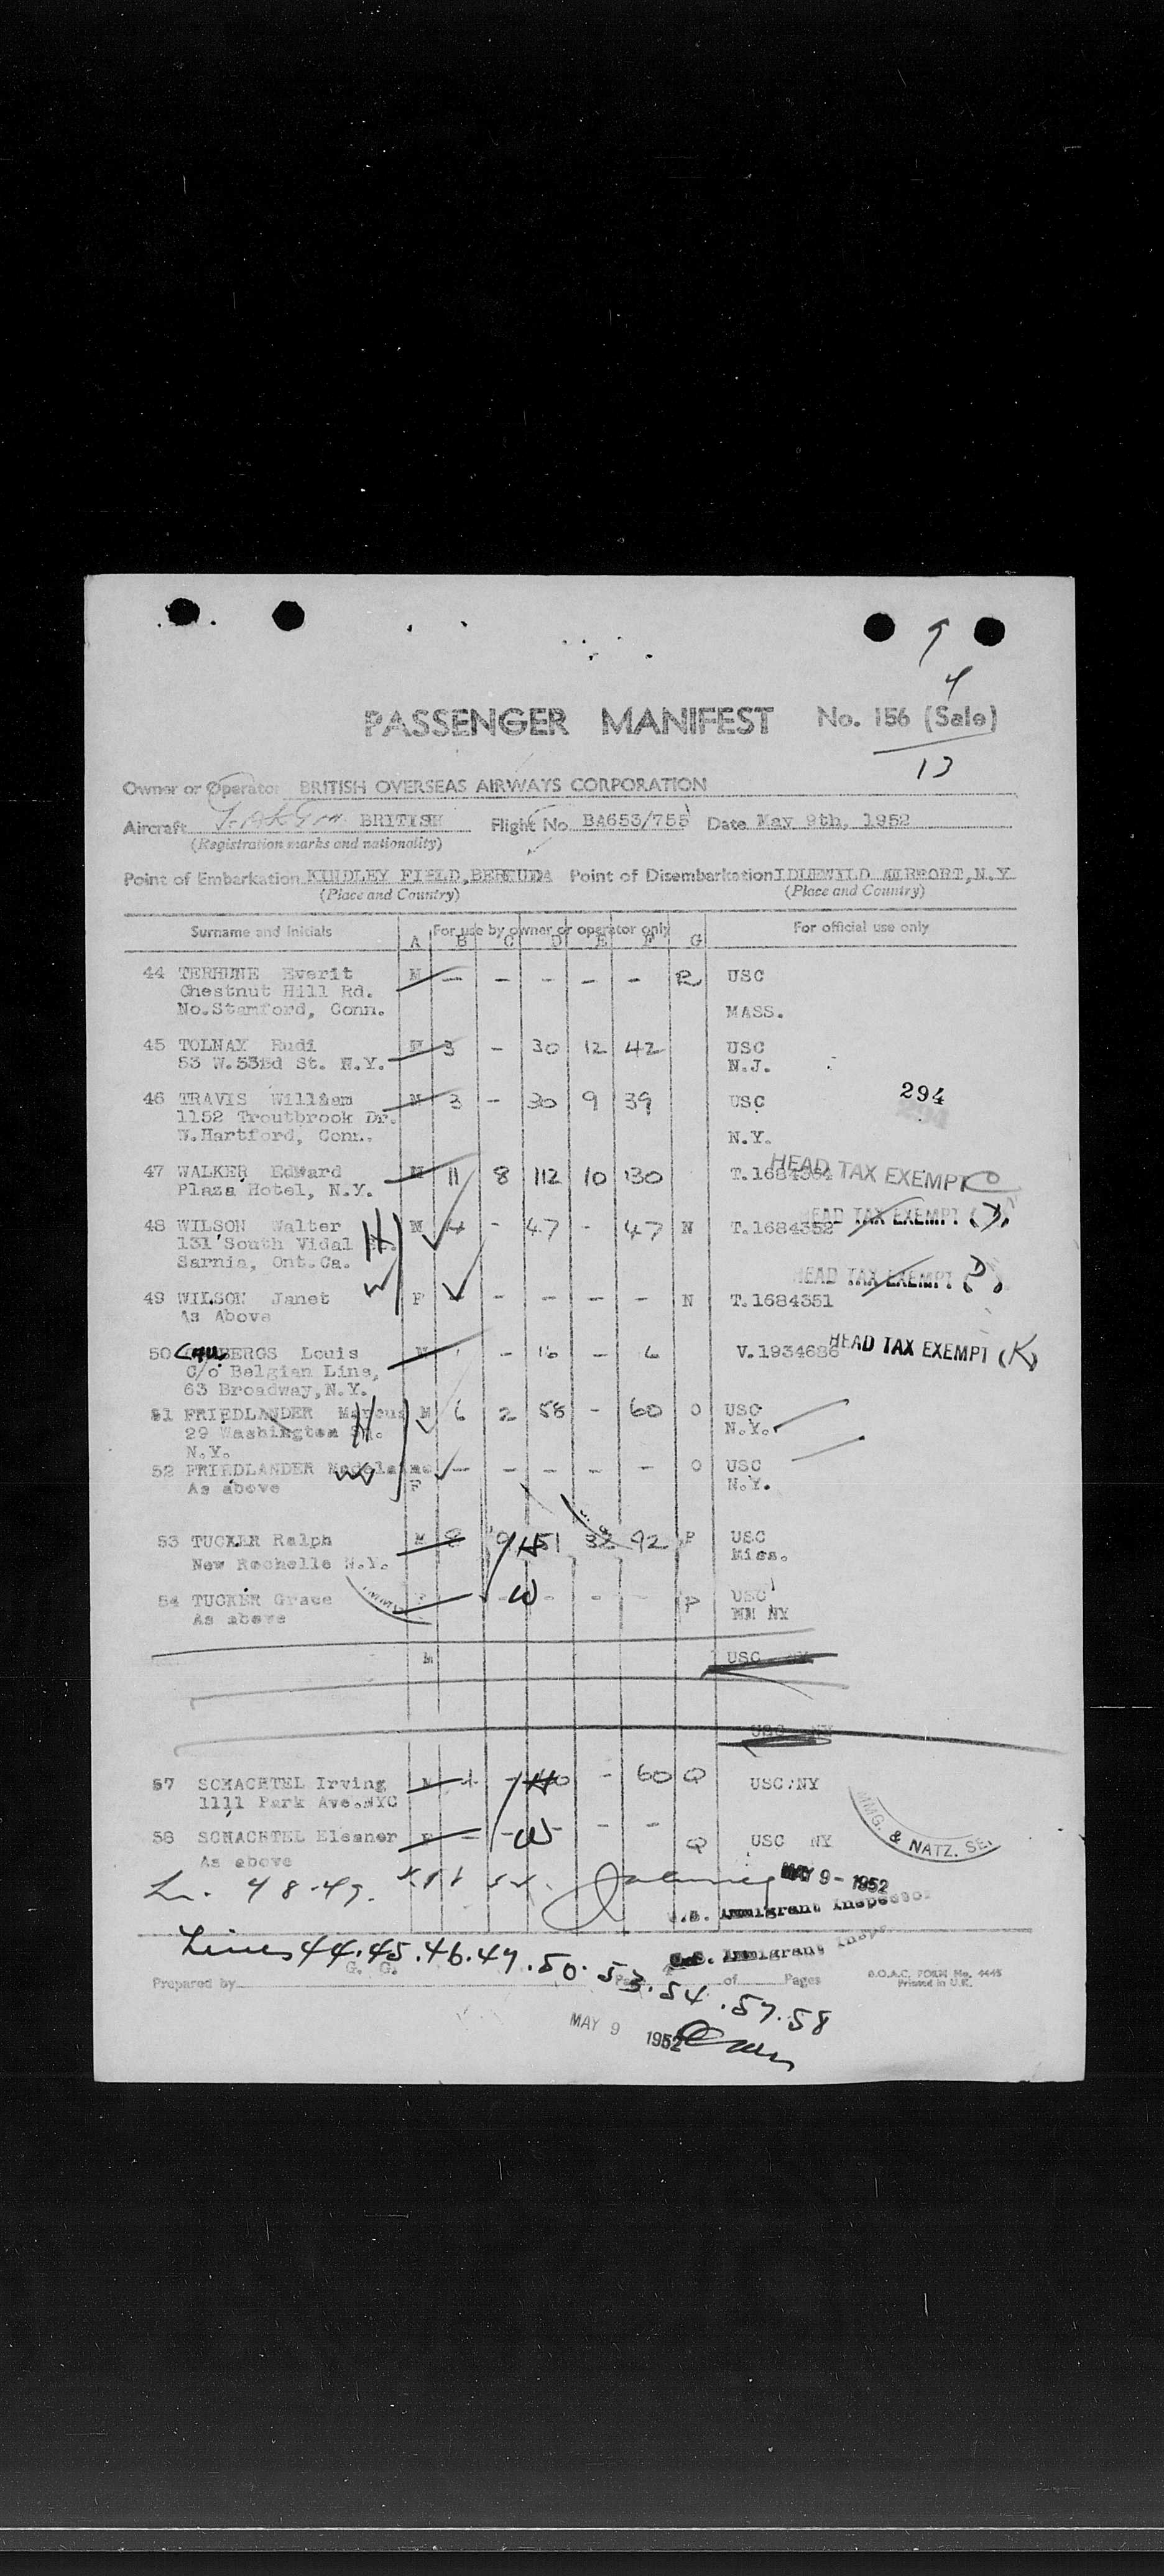 4
PASSENGER MANIFEST No. 156 (Sale)
13
Owner or Operator BRITISH OVERSEAS AIRWAYS CORPORATION
Aircraft BRITISH Flight No. BA653/755 Date May 9th, 1952
(Registration marks and nationality)
Point of Embarkation KINDLEY FIELD, BERMUDA Point of Disembarkation IDLEWILD AIRPORT, N.Y.
(Place and Country) (Place and Country)
Surname and Initials For use by owner or operator only For official use only
A B C D E F G
44 TERHUNE Everit M - - - - - R USC
Chestnut Hill Rd.
No.Stamford, Conn. MASS.
45 TOLNAY Rudi M 3 - 30 12 42 USC
53 W.53rd St. N.Y. N.J.
46 TRAVIS William M 3 - 30 9 39 USC 294
1152 Troutbrook Dr.
W.Hartford, Conn. N.Y.
47 WALKER Edward M 11 8 112 10 130 T.1684354 HEAD TAX EXEMPT
Plaza Hotel, N.Y.
48 WILSON Walter H M 4 - 47 - 47 N T.1684352 HEAD TAX EXEMPT
131 South Vidal St.
Sarnia, Ont.Ca.
HEAD TAX EXEMPT (D)
49 WILSON Janet W F - - - - - N T.1684351
As Above
50 BERGS Louis M 1 - 16 - 6 V.1934686 HEAD TAX EXEMPT (K)
C/o Belgian Line,
63 Broadway, N.Y.
51 FRIEDLANDER Marcus H M 6 2 58 - 60 O USC
29 Washington Sq. N.Y.
N.Y.
52 FRIEDLANDER W - - - - - O USC
As above F N.Y.
53 TUCKER Ralph M 8 9 H 51 32 92 P USC
New Rochelle N.Y. Miss.
54 TUCKER Grace F - W - - - P USC
As above NY
M USC
USC NY
57 SCHACHTEL Irving M - H - 60 Q USC NY
1111 Park Ave.NYC
58 SCHACHTEL Eleanor F - - W - - - Q USC NY
As above
IMMG. & NATZ. SE
Ln. 48-49. MAY 9 - 1952
U.S. Immigrant Inspector
Lines 44.45.46.47.50.53.54.57.58
U.S. Immigrant Insp
Prepared by G. G. of Pages B.O.A.C. FORM No. 4445
Printed in U.K.
MAY 9 1952